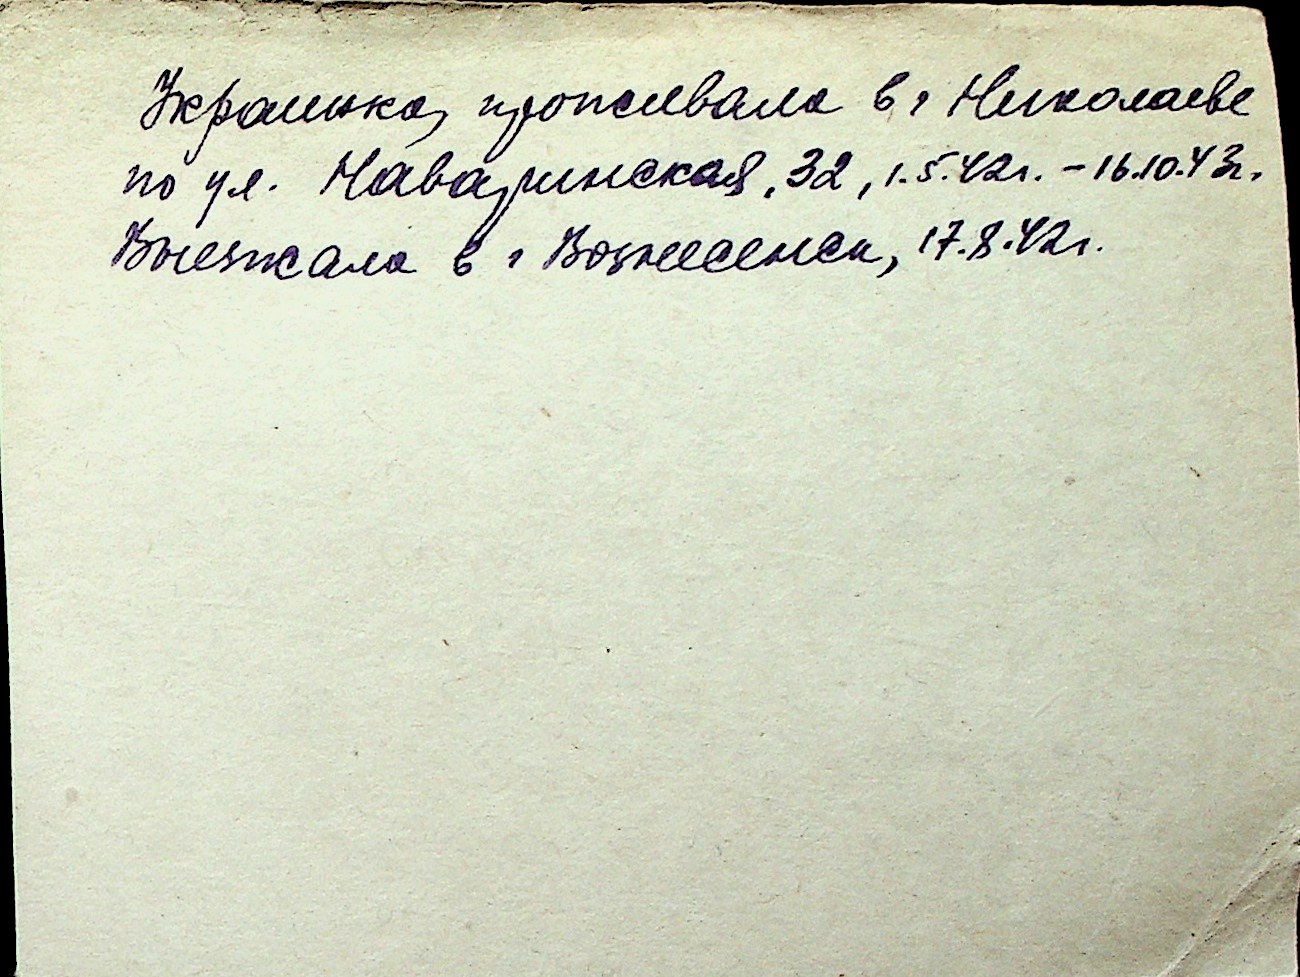 Украинка, проживала в г Николаеве
по ул. Наваринская, 32, 1.5.42г. – 16.10.43г.
Выезжала в г Вознесенск, 17.8.42г.